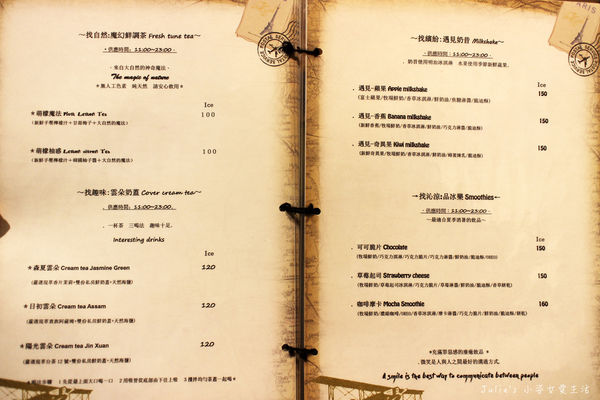 ~找自然:魔幻鮮調茶 Fresh tune tea~
·供應時間: 11:00~23:00·
·來自大自然的神奇魔法·
The magic of nature
*無人工色素 純天然 請安心飲用*
Ice
*萌檬魔法 Plum Lemon Tea 100
(新鮮手壓檸檬汁+甘甜梅子+大自然的魔法)
*萌檬柚感 Lemon citron Tea 100
(新鮮手壓檸檬汁+韓國柚子醬+大自然的魔法)
~找趣味:雲朵奶蓋 Cover cream tea~
·供應時間: 11:00~23:00·
·一杯茶 三喝法 趣味十足·
Interesting drinks
Ice
*森夏雲朵 Cream tea Jasmine Green 120
(嚴選窨萃香片茉莉+雙份私房鮮奶蓋+天然海鹽)
*日初雲朵 Cream tea Assam 120
(嚴選窨萃直飲阿薩姆+雙份私房鮮奶蓋+天然海鹽)
*陽光雲朵 Cream tea Jin Xuan 120
(嚴選窨萃台茶12號+雙份私房鮮奶蓋+天然海鹽)
1先從最上面大口喝一口 2用吸管從底部由下往上吸 3攪拌均勻蓋著一起喝*
PARIS
~找繽紛:遇見奶昔 Milkshake~
·供應時間: 11:00~23:00·
·奶昔使用明治冰淇淋 水果使用季節新鮮蔬果·
Ice
·遇見-蘋果 Apple milkshake 150
(富士蘋果/牧場鮮奶/香草冰淇淋/鮮奶油/焦糖淋醬/脆迪酥)
·遇見-香蕉 Banana milkshake 150
(新鮮香蕉/牧場鮮奶/香草冰淇淋/鮮奶油/巧克力淋醬/脆迪酥)
·遇見-奇異果 Kiwi milkshake 150
(新鮮奇異果/牧場鮮奶/香草冰淇淋/鮮奶油/蜂蜜煉乳/脆迪酥)
→找沁涼:品冰樂 Smoothies←
·供應時間: 11:00~23:00·
~最適合夏季消暑的飲品~
Ice
·可可脆片 Chocolate 150
(牧場鮮奶/巧克力冰淇淋/巧克力脆片/巧克力淋醬/鮮奶油/脆迪酥/OREO)
·草莓起司 Strawberry cheese 150
(牧場鮮奶/草莓起司冰淇淋/巧克力脆片/草莓淋醬/鮮奶油/脆迪酥/香草餅乾)
·咖啡摩卡 Mocha Smoothie 160
(牧場鮮奶/濃縮咖啡/OREO/香草冰淇淋/摩卡淋醬/巧克力脆片/鮮奶油/脆迪酥/餅乾)
*充滿幸福感的療癒飲品*
·微笑是人與人之間最好的溝通方式·
A smile is the best way to communicate between people
Julie's 小子女愛生活